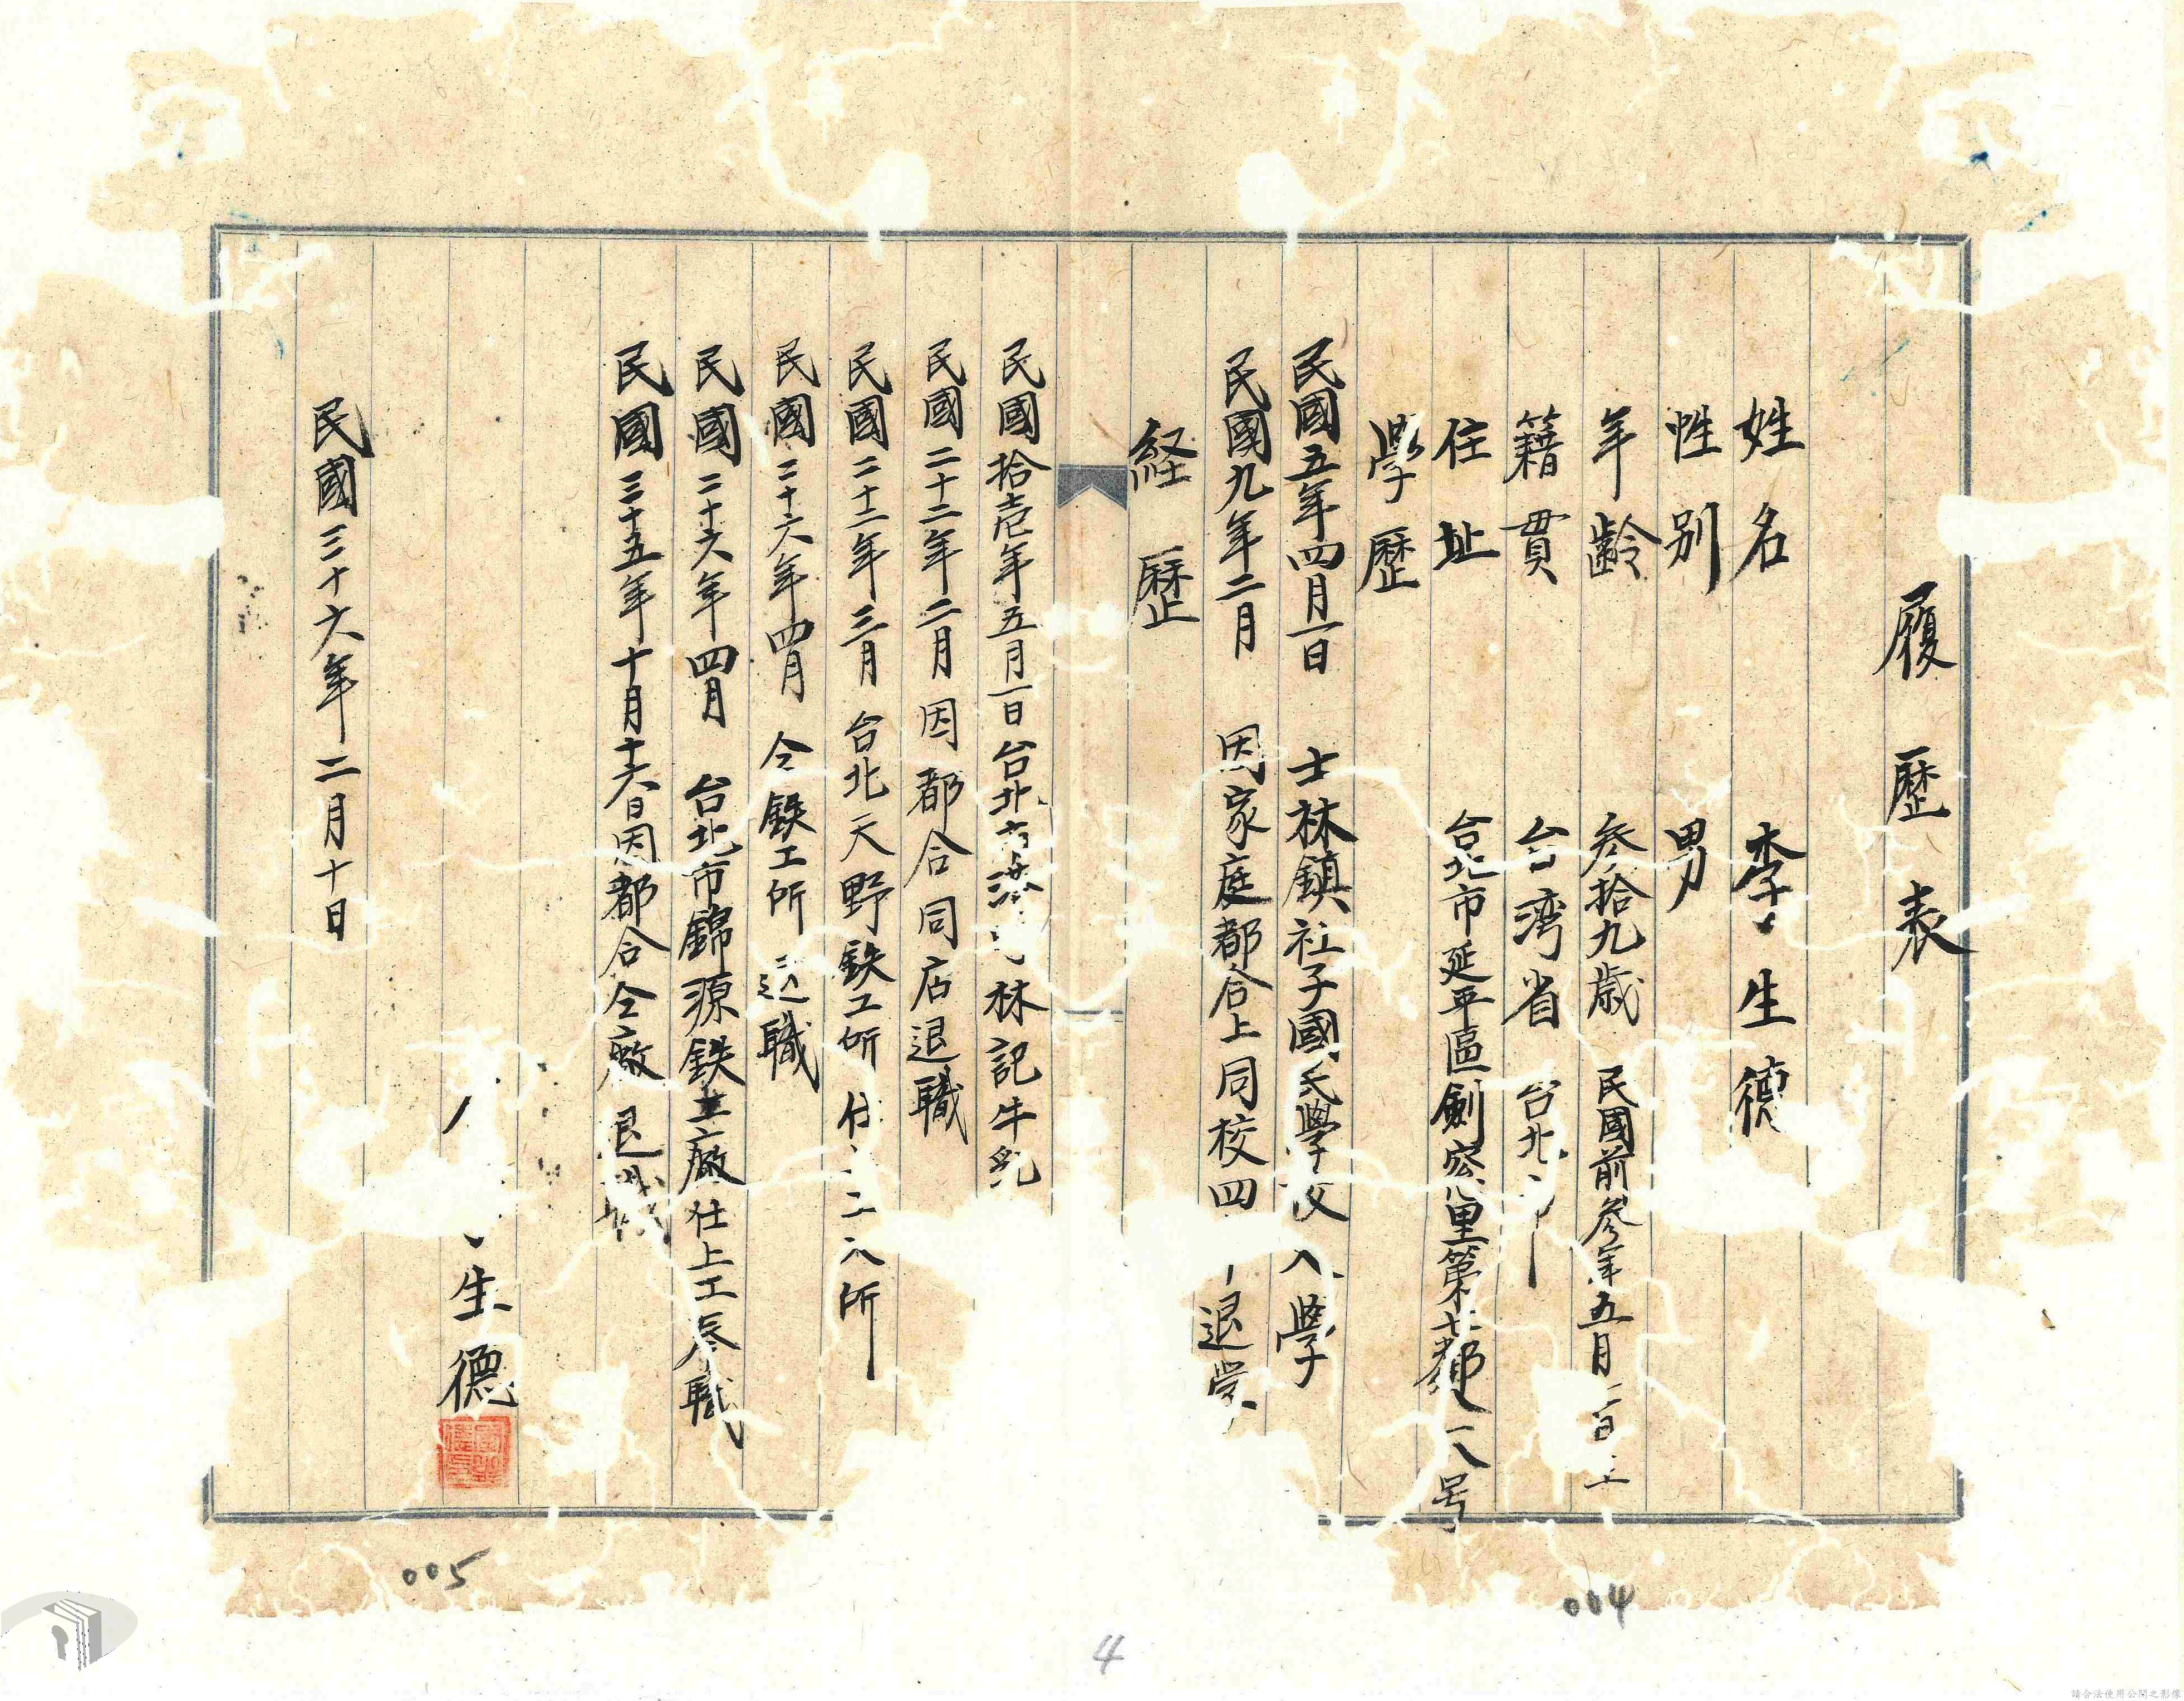 履歷表
姓名 李生德
性別 男
年齡 參拾九歲 民國前參年五月二日
籍貫 台湾省 台北
住址 台北市延平區劍 里第 一八号
學歷
民國五年四月一日 士林鎮社子國民學校入學
民國九年二月 因家庭都合上同校四 退學
経歷
民國拾壱年五月一日台北 林記牛乳
民國二十二年二月因都合同店退職
民國二十二年三月台北天野鉄工所仕 入所
民國二十六年四月 仝鉄工所 退職
民國二十六年四月 台北市錦源鉄工廠仕上工 職
民國三十五年十月十六日因都合仝廠退職
生德
民國三十六年二月十日
005
004
4
請合法使用公開之影像